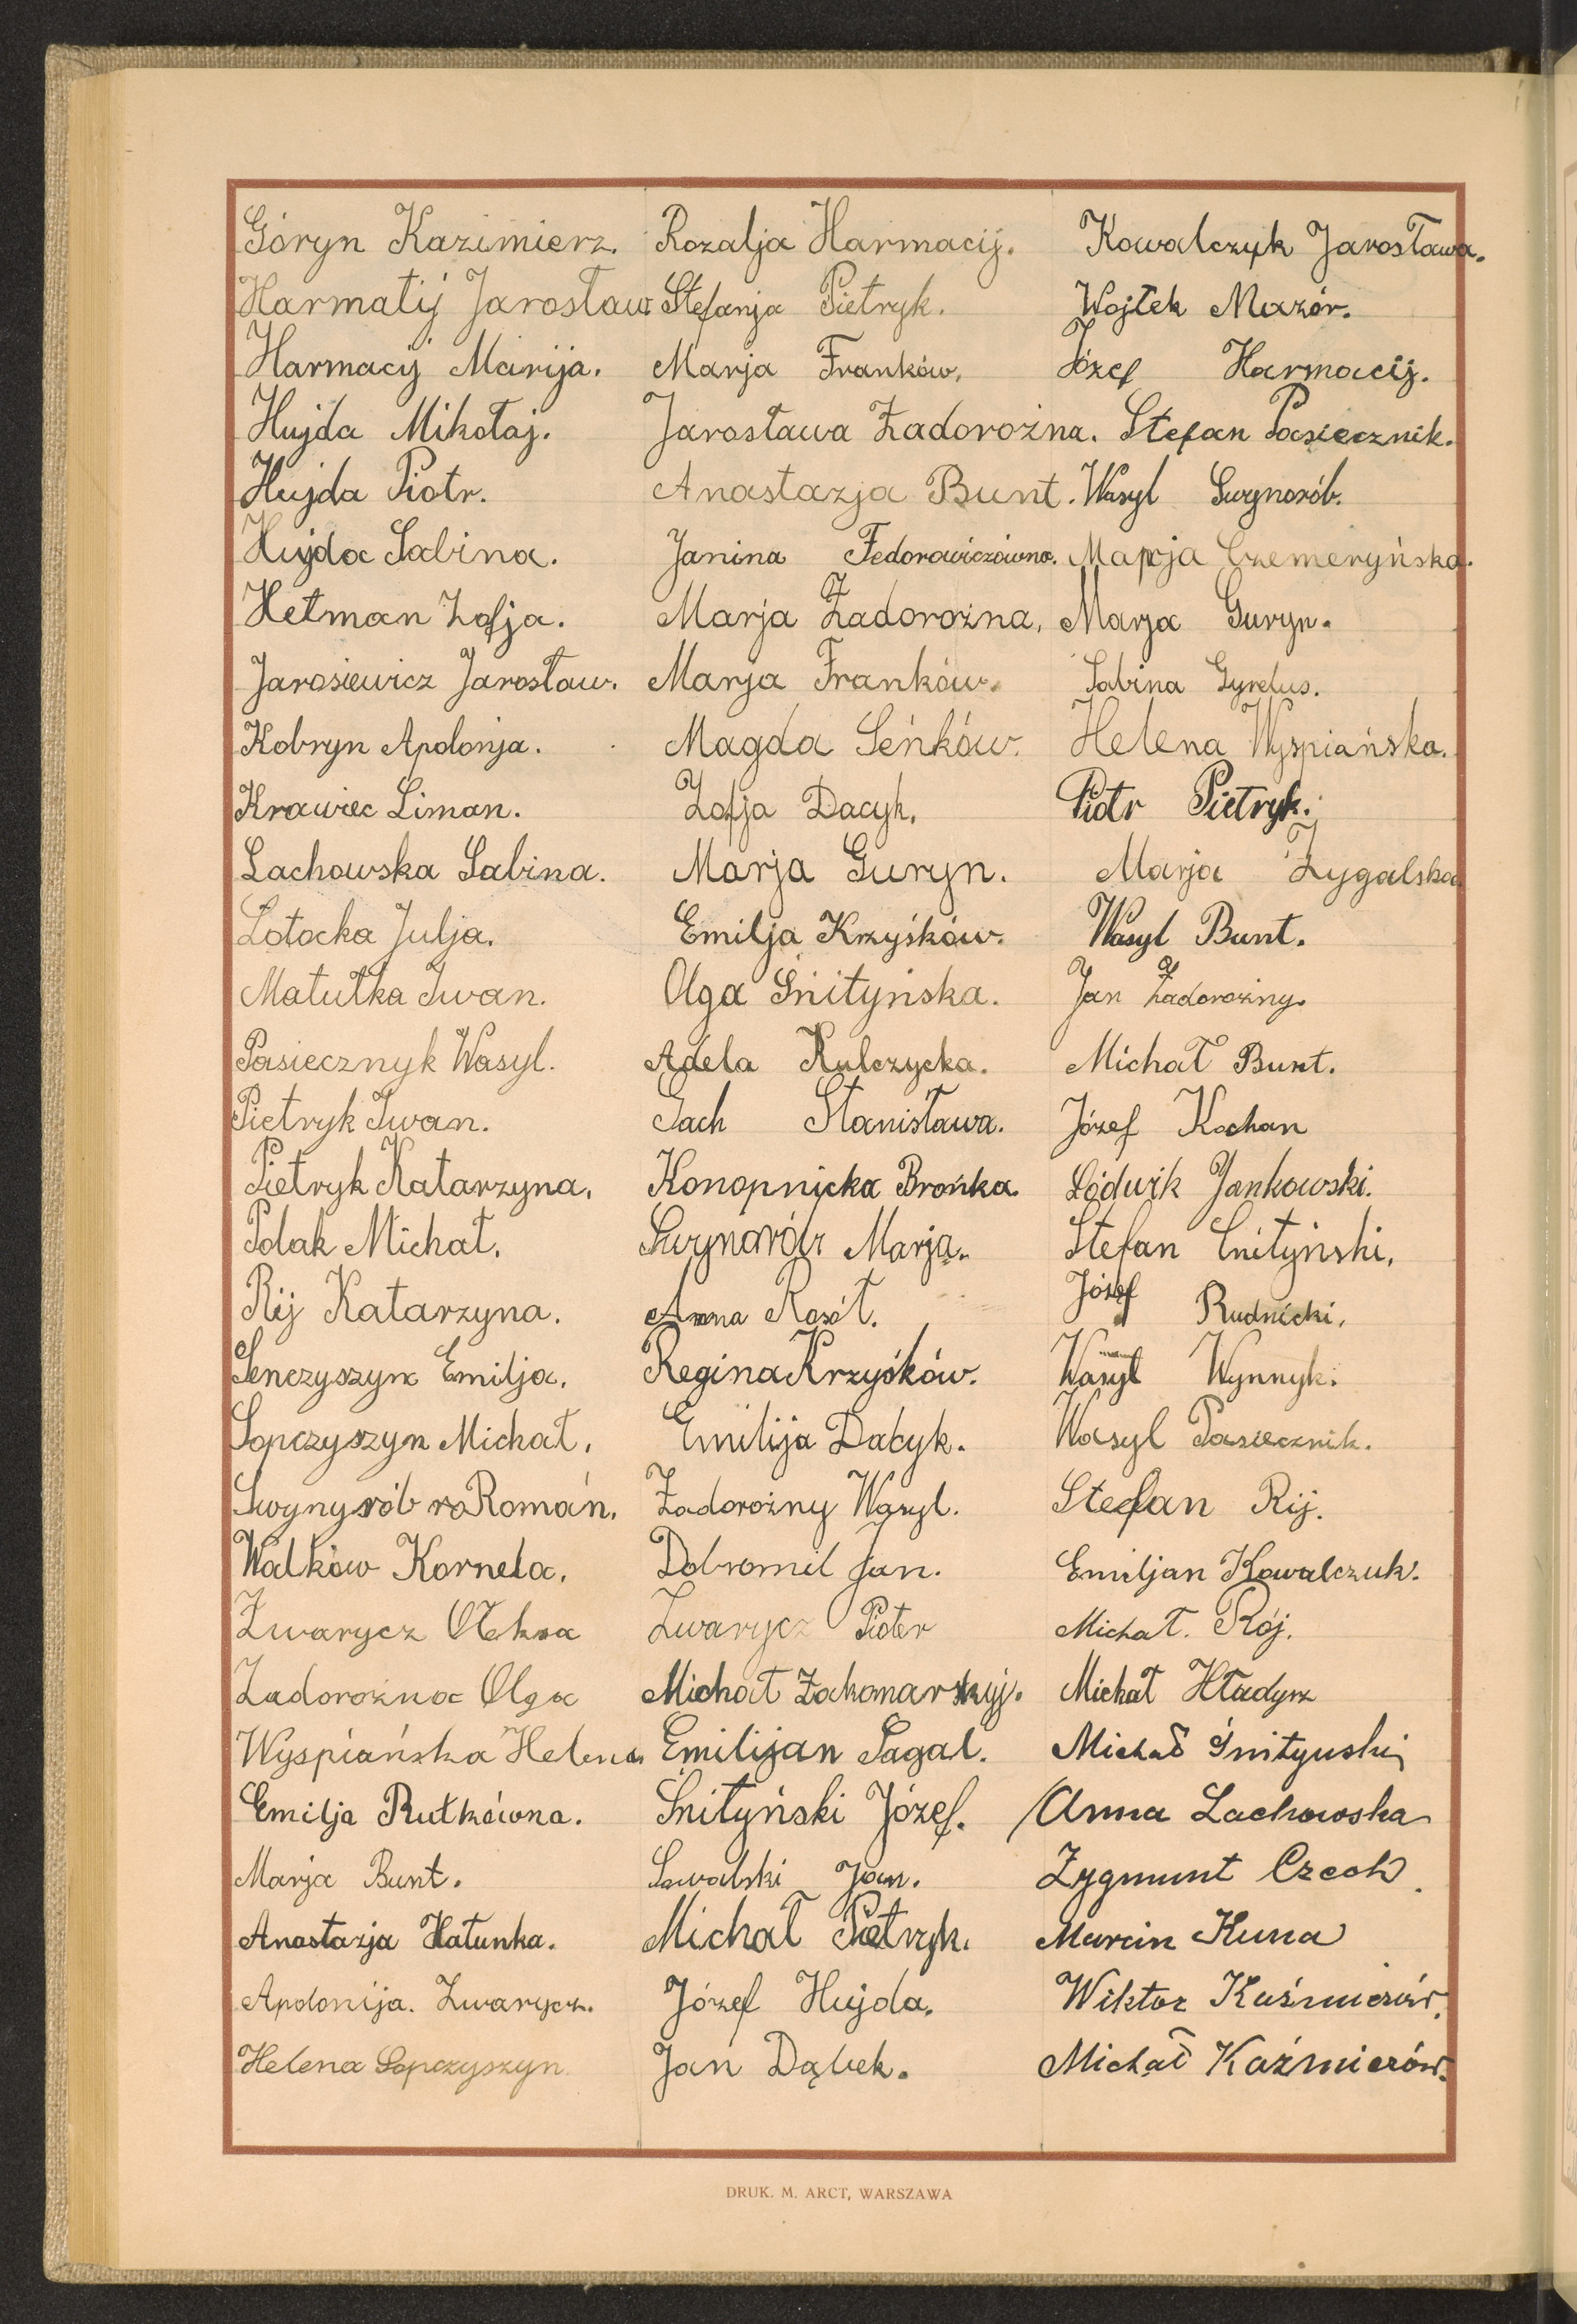 Góryn Kazimierz.
Harmatij Jarosław
Harmacij Marija.
Hujda Mikołaj.
Hujda Piotr.
Hujda Sabina.
Hetman Zofja.
Jarosiewicz Jarosław.
Kobryn Apolonja.
Krawiec Liman.
Lachowska Sabina.
Łotocka Julja.
Matułka Iwan.
Pasiecznyk Wasyl.
Pietryk Iwan.
Pietryk Katarzyna.
Polak Michał.
Rij Katarzyna.
Senczyszyn Emilja.
Sopczyszyn Michał.
Swynyrób Román.
Walków Kornela.
Zwarycz Ołeksa
Zadorożna Olga
Wyspiańska Helena
Emilja Rutkówna.
Marja Bunt.
Anastazja Hałunka.
Apolonija. Zwarycz.
Helena Sopczyszyn
Rozalja Harmacij.
Stefanja Pietryk.
Marja Franków.
Jarosława Żadorożna.
Anastazja Bunt.
Janina Fedorowiczówna.
Marja Żadorożna.
Marja Franków.
Magda Seńków.
Zofja Dacyk.
Marja Guryn.
Emilja Krzyśków.
Olga Śnityńska.
Adela Kulczycka.
Gach Stanisława.
Konopnicka Brońka.
Marja.
Anna Rosół.
Regina Krzyśków.
Emilija Dacyk.
Żadorożny Wasyl.
Dobromil Jan.
Zwarycz Pioter
Michał Zakomarskyj.
Emilijan Sagal.
Śnityński Józef.
Suwalski Jan.
Michał Pietryk.
Józef Hujda.
Jan Dąbek.
Kowalczyk Jarosława.
Wojtek Mazór.
Józef Harmacij.
Stefan Pasiecznik.
Wasyl Swynorób.
Marja Czemeryńska.
Marja Guryn.
Sabina Gyrelus.
Helena Wyspiańska.
Piotr Pietryk.
Marja Zygalska
Wasyl Bunt.
Jan Żadorożny.
Michał Bunt.
Józef Kochan
Lódwik Jankowski.
Stefan Śnityński.
Józef Rudnicki.
Wasyl Wynnyk.
Wasyl Pasiecznik.
Stefan Rij.
Emiljan Kowalczuk.
Michał. Rój.
Michał Hładysz
Michał Śnityński
Anna Lachowska
Zygmunt Czech
Marcin Kuna
Wiktor Kaźmierów.
Michał Kaźmierów.
DRUK. M. ARCT, WARSZAWA